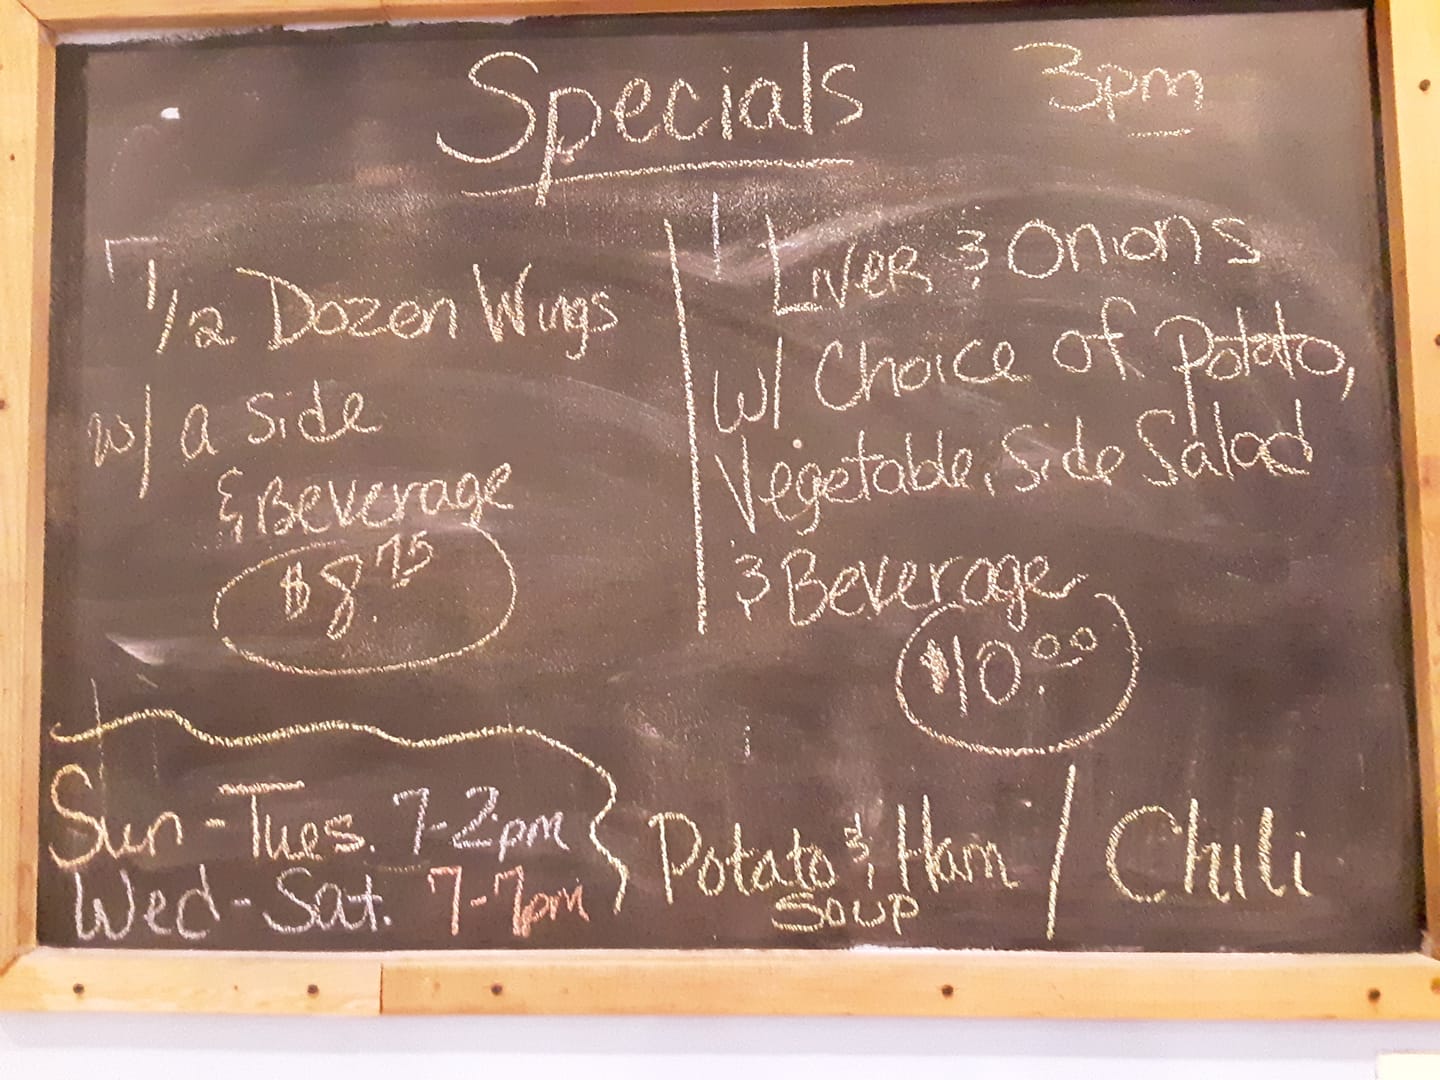 Specials
3pm
1/2 Dozen Wings
w/ a side
& Beverage
$8.75
Liver & Onions
w/ Choice of Potato,
Vegetable, Side Salad
& Beverage
$10.00
Sun-Tues. 7-2pm
Wed-Sat. 7-7pm
Potato & Ham / Chili
Soup